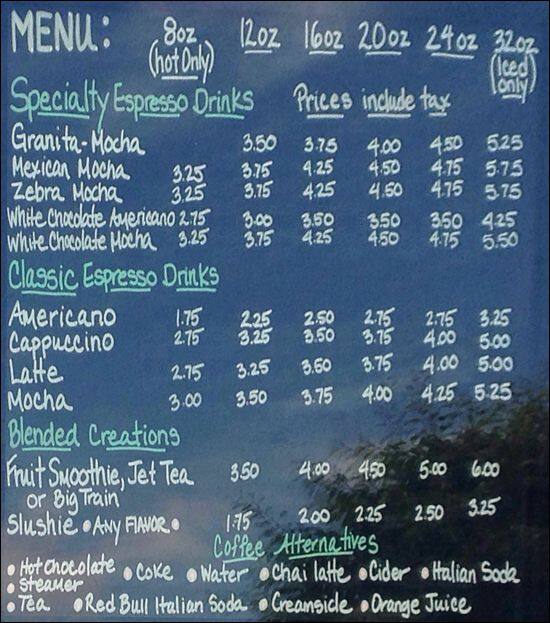 MENU: 8oz 12oz 16oz 20oz 24oz 32oz
(hot Only) (Iced only)
Specialty Espresso Drinks Prices include tax
Granita-Mocha 3.50 3.75 4.00 4.50 5.25
Mexican Mocha 3.25 3.75 4.25 4.50 4.75 5.75
Zebra Mocha 3.25 3.75 4.25 4.50 4.75 5.75
White Chocolate Americano 2.75 3.00 3.50 3.50 3.50 4.25
White Chocolate Mocha 3.25 3.75 4.25 4.50 4.75 5.50
Classic Espresso Drinks
Americano 1.75 2.25 2.50 2.75 2.75 3.25
Cappuccino 2.75 3.25 3.50 3.75 4.00 5.00
Latte 2.75 3.25 3.50 3.75 4.00 5.00
Mocha 3.00 3.50 3.75 4.00 4.25 5.25
Blended Creations
Fruit Smoothie, Jet Tea 3.50 4.00 4.50 5.00 6.00
or Big Train
Slushie • ANY FLAVOR • 1.75 2.00 2.25 2.50 3.25
Coffee Alternatives
• Hot Chocolate • Coke • Water • Chai latte • Cider • Italian Soda
• Steamer
• Tea • Red Bull Italian Soda • Creamsicle • Orange Juice